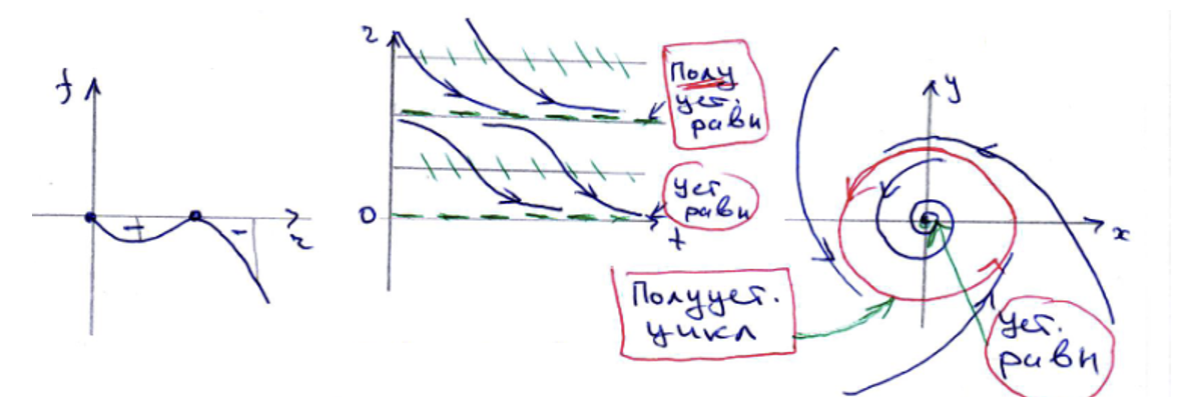 f
r
r
0
t
Полу
уст.
равн
Уст
равн
y
x
Полууст.
цикл
Уст.
равн